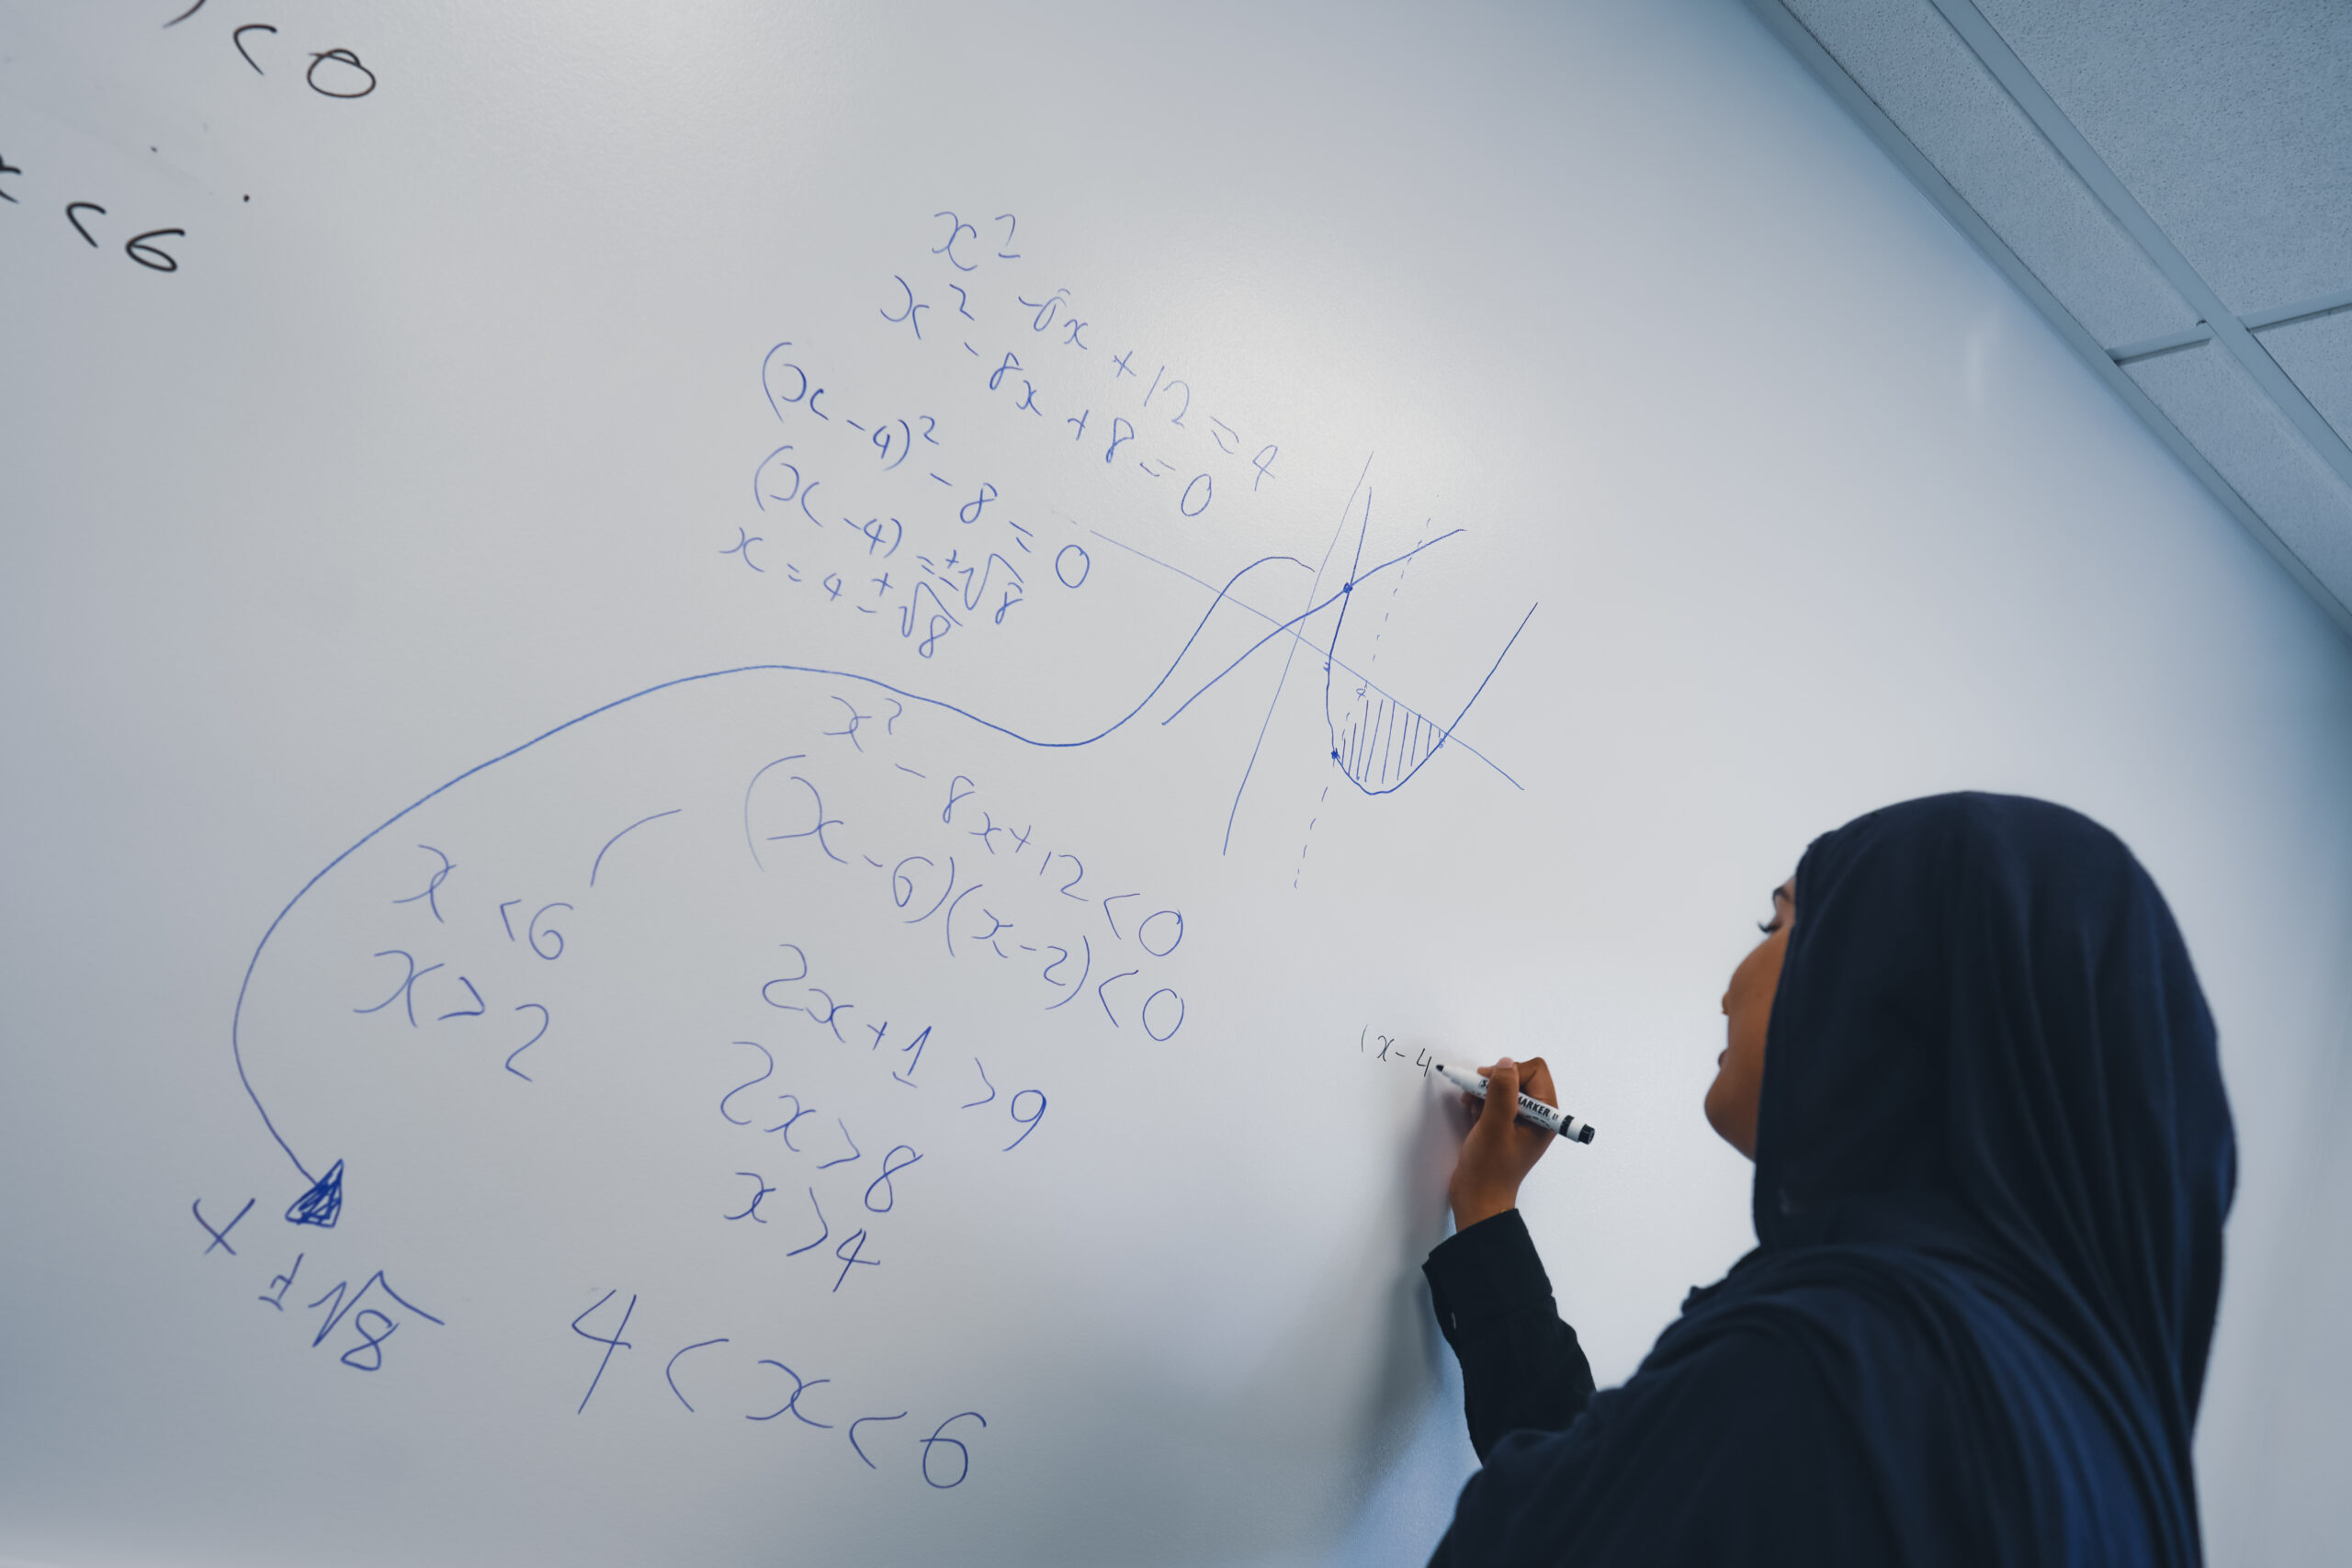 ) < 0
x < 6
x²
x² - 8x + 12 = 4
x² - 8x + 8 = 0
(x - 4)² - 8 = 0
(x - 4) = ±√8
x = 4 ± √8
x² - 8x + 12 < 0
(x - 6)(x - 2) < 0
x < 6
x > 2
2x + 1 > 9
2x > 8
x > 4
± √8
4 < x < 6
(x - 4
MARKER